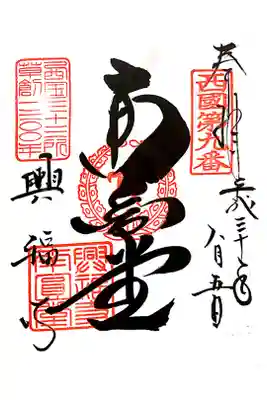 奉拝 平成三十年
八月五日
西國第九番
南円堂
西国三十三所
草創一三〇〇年
興福寺